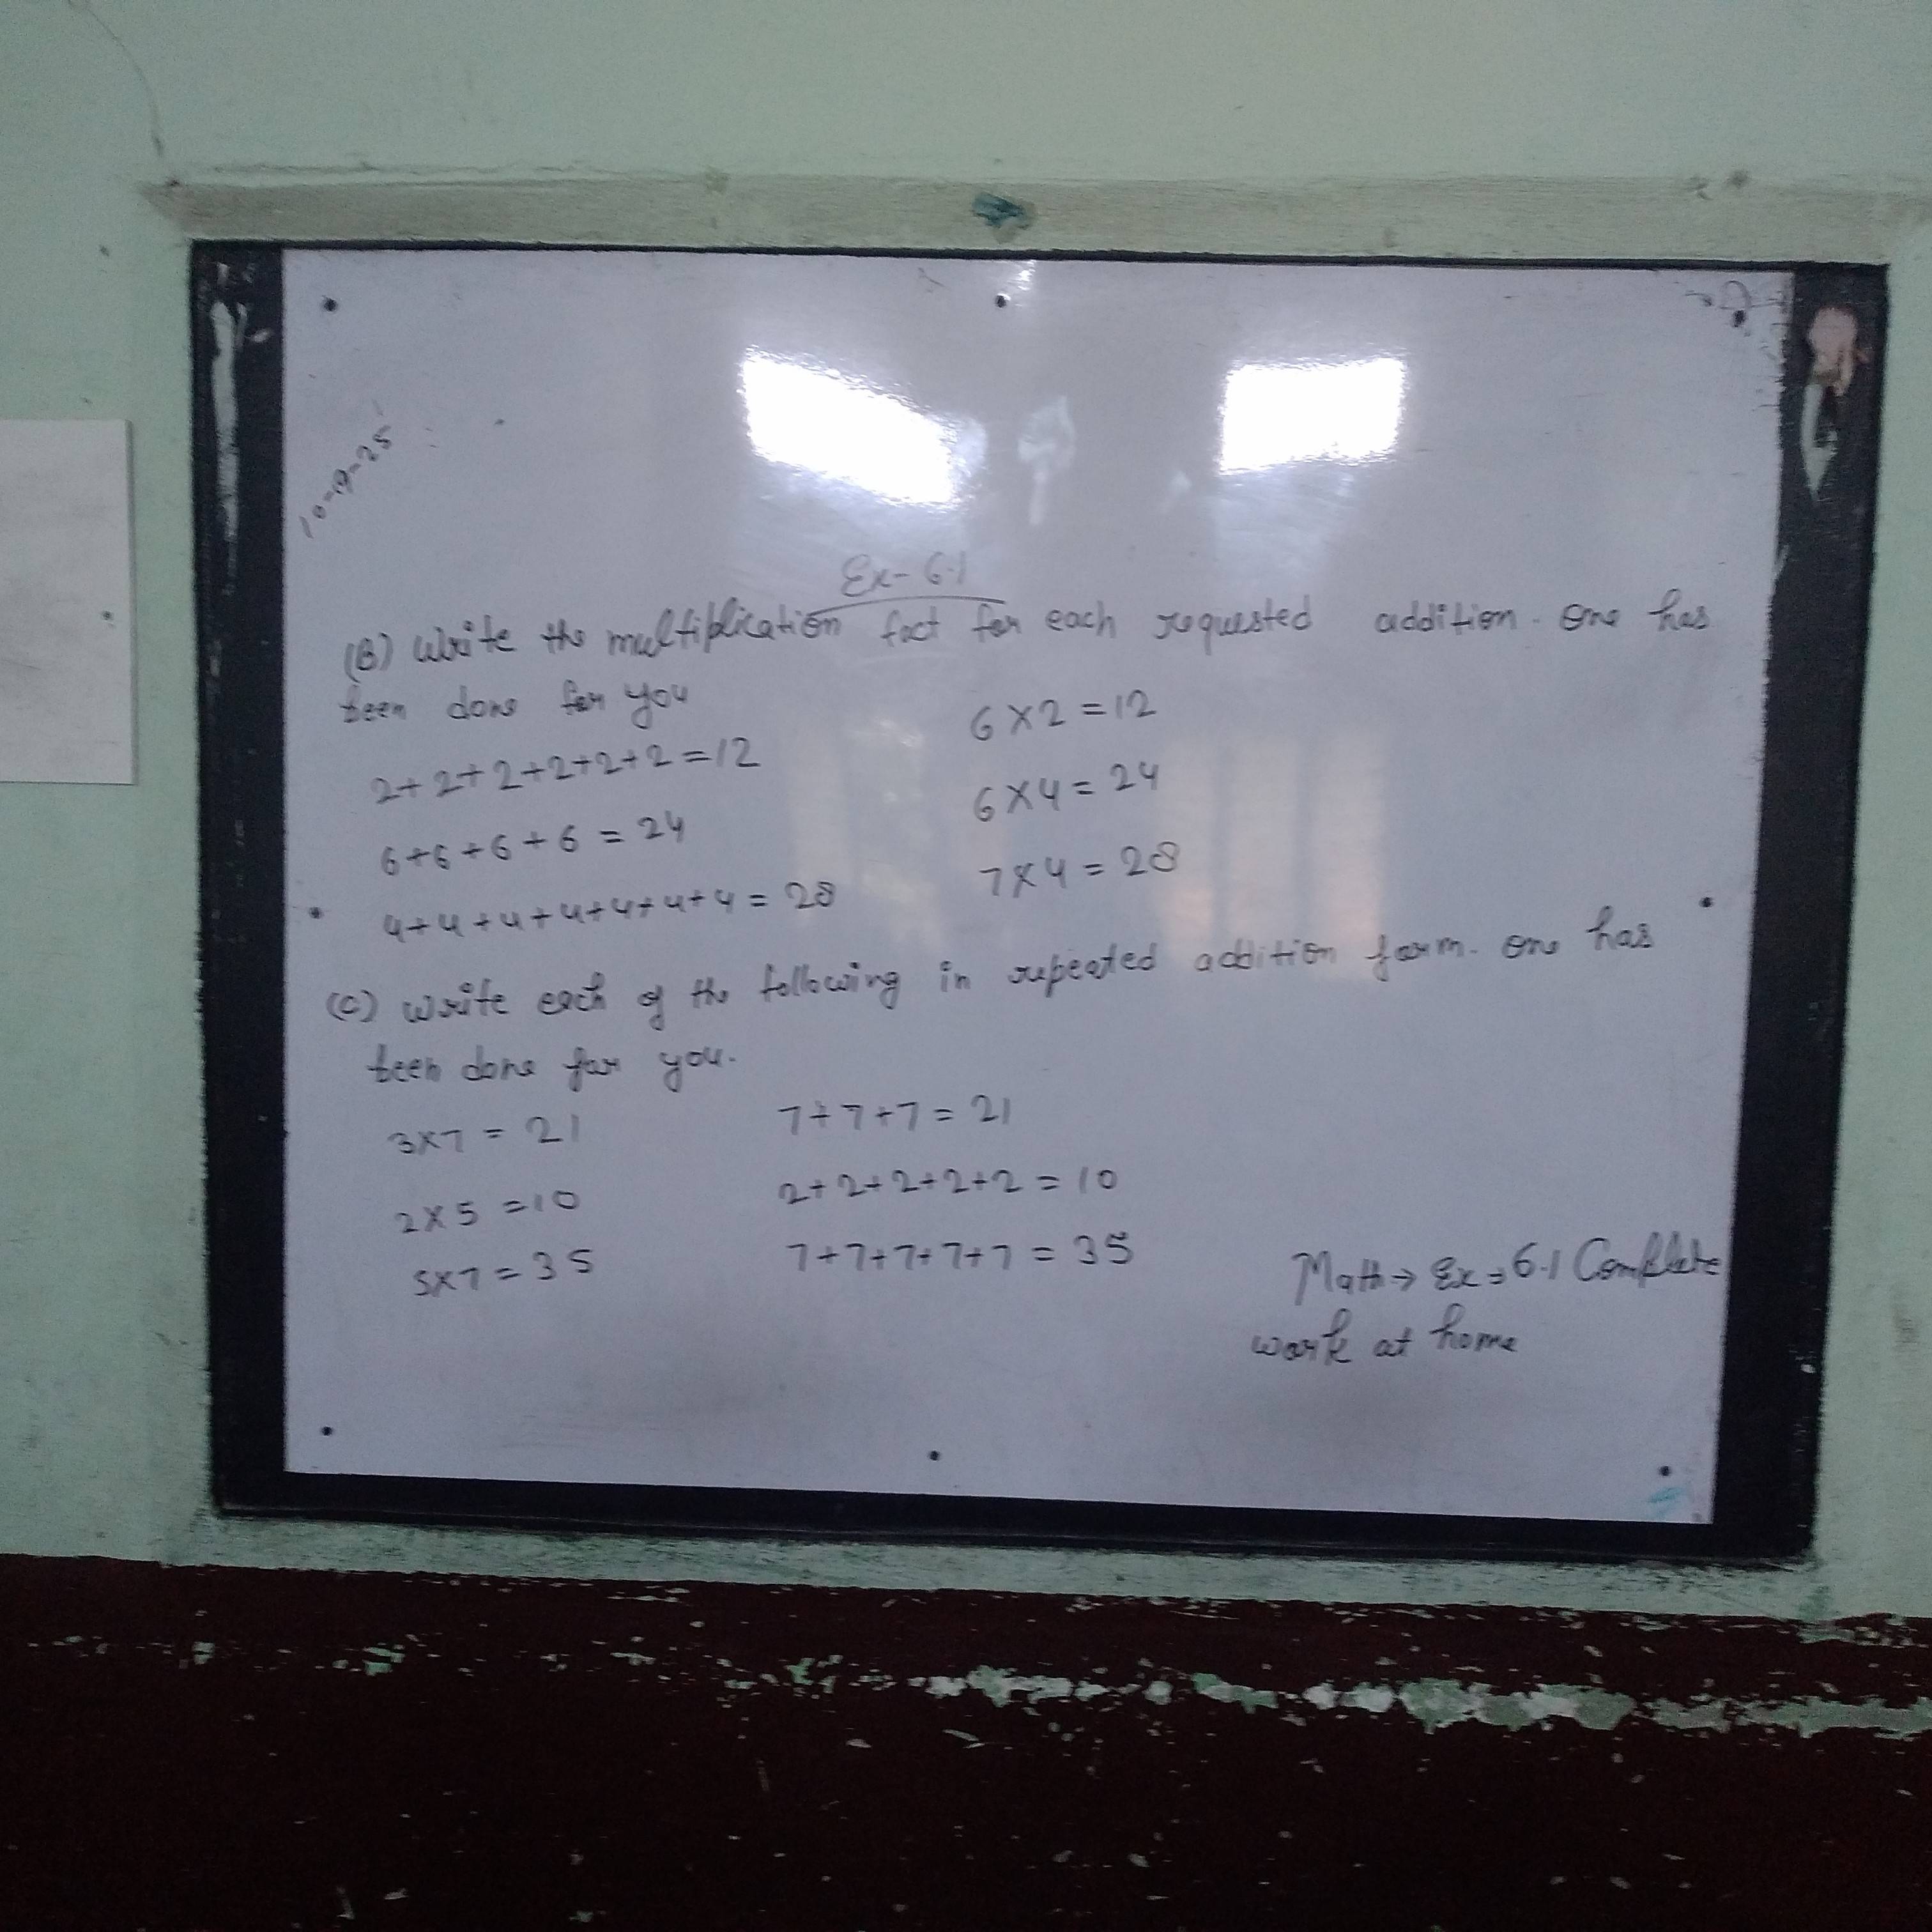 10-9-25
Ex- 6.1
(B) Write the multiplication fact for each requested addition. One has
been done for you
2+2+2+2+2+2=12 6×2=12
6+6+6+6=24 6×4=24
4+4+4+4+4+4+4=28 7×4=28
(C) Write each of the following in repeated addition form. One has
been done for you.
3×7=21 7+7+7=21
2×5=10 2+2+2+2+2=10
5×7=35 7+7+7+7+7=35
Math→ Ex=6.1 Complete
work at home